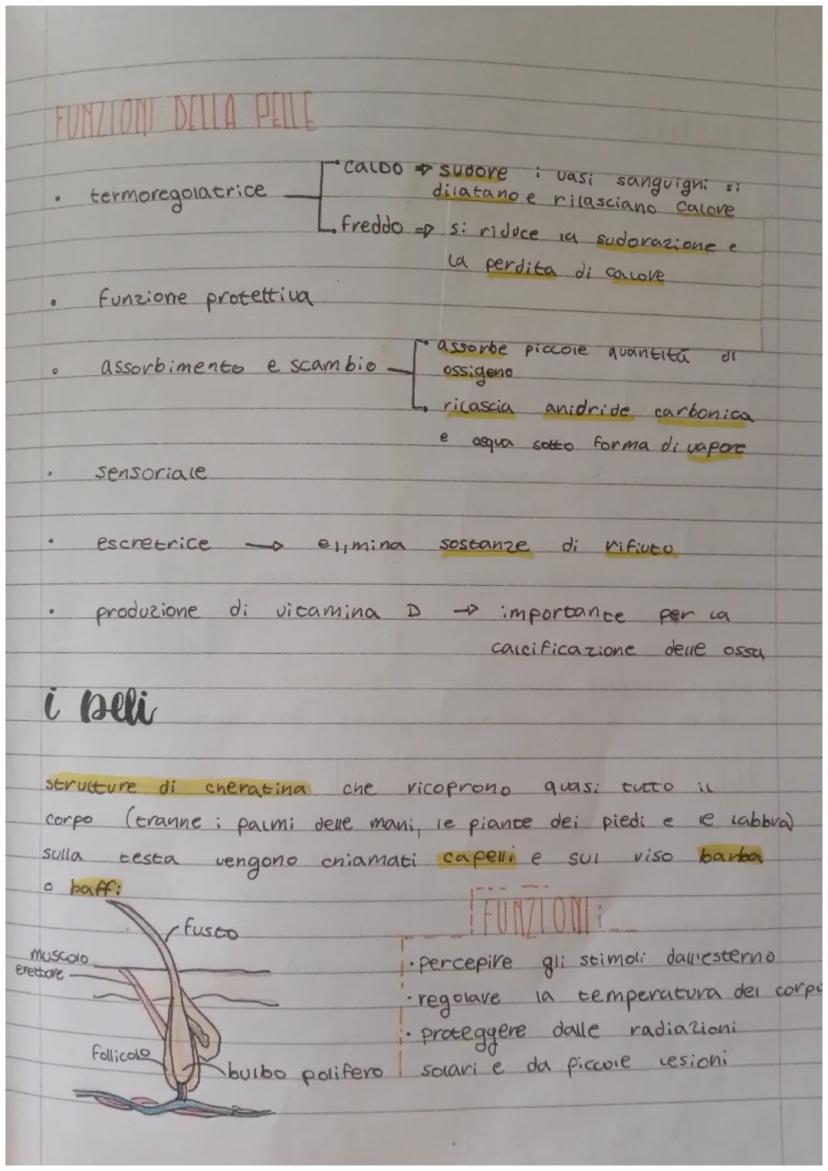 FUNZIONI DELLA PELLE
• termoregolatrice
caldo ⇒ sudore i vasi sanguigni si
dilatano e rilasciano calore
freddo ⇒ si riduce la sudorazione e
la perdita di calore
• funzione protettiva
• assorbimento e scambio
assorbe piccole quantità di
ossigeno
rilascia anidride carbonica
e acqua sotto forma di vapore
• sensoriale
• escretrice → elimina sostanze di rifiuto
• produzione di vitamina D → importante per la
calcificazione delle ossa
i peli
strutture di cheratina che ricoprono quasi tutto il
corpo (tranne i palmi delle mani, le piante dei piedi e le labbra)
sulla testa vengono chiamati capelli e sul viso barba
o baffi
fusto
muscolo
erettore
follicolo
bulbo polifero
FUNZIONI:
• percepire gli stimoli dall'esterno
• regolare la temperatura del corpo
• proteggere dalle radiazioni
solari e da piccole lesioni